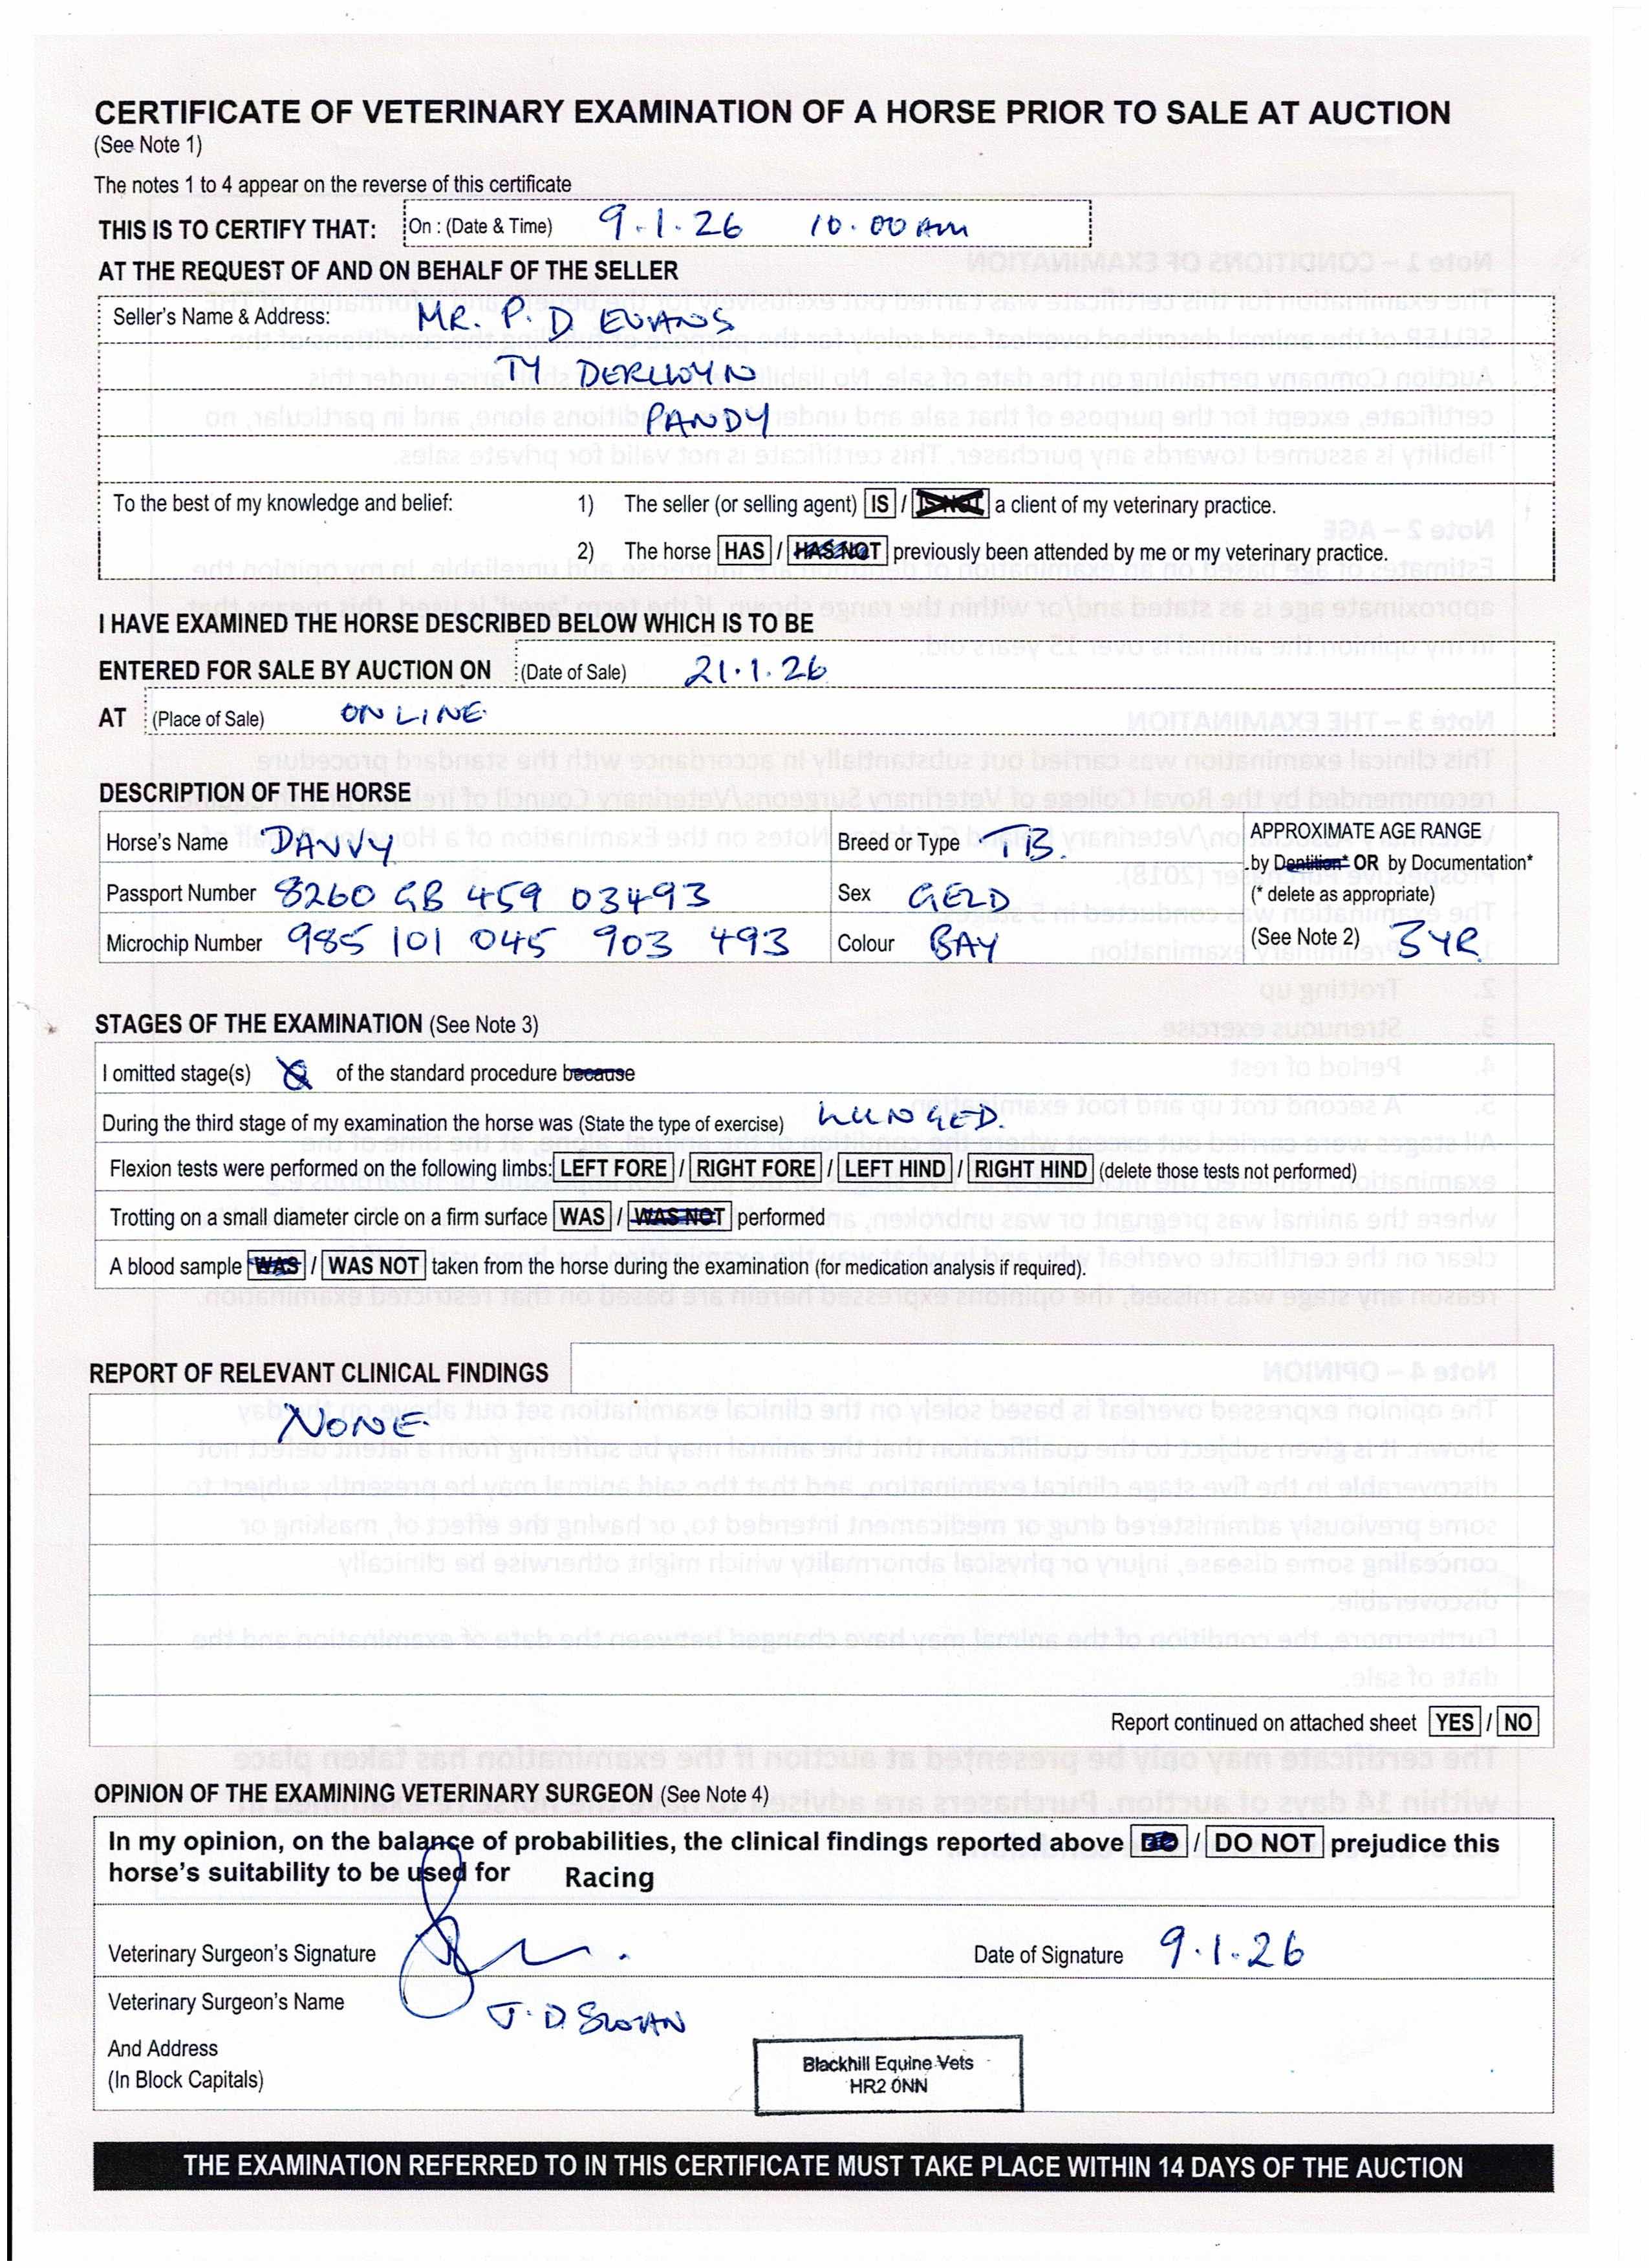 CERTIFICATE OF VETERINARY EXAMINATION OF A HORSE PRIOR TO SALE AT AUCTION
(See Note 1)
The notes 1 to 4 appear on the reverse of this certificate
THIS IS TO CERTIFY THAT: On : (Date & Time) 9.1.26 10.00 AM
AT THE REQUEST OF AND ON BEHALF OF THE SELLER
Seller's Name & Address: MR. P. D EVANS
TY DERLWYN
PANDY
To the best of my knowledge and belief: 1) The seller (or selling agent) IS / IS NOT a client of my veterinary practice.
2) The horse HAS / HAS NOT previously been attended by me or my veterinary practice.
I HAVE EXAMINED THE HORSE DESCRIBED BELOW WHICH IS TO BE
ENTERED FOR SALE BY AUCTION ON (Date of Sale) 21.1.26
AT (Place of Sale) ON LINE
DESCRIPTION OF THE HORSE
Horse's Name DAVVY Breed or Type TB. APPROXIMATE AGE RANGE
by Dentition* OR by Documentation*
Passport Number 8260 GB 459 03493 Sex GELD (* delete as appropriate)
Microchip Number 985 101 045 903 493 Colour BAY (See Note 2) 3 YR
STAGES OF THE EXAMINATION (See Note 3)
I omitted stage(s) of the standard procedure because
During the third stage of my examination the horse was (State the type of exercise) LUNGED.
Flexion tests were performed on the following limbs: LEFT FORE / RIGHT FORE / LEFT HIND / RIGHT HIND (delete those tests not performed)
Trotting on a small diameter circle on a firm surface WAS / WAS NOT performed
A blood sample WAS / WAS NOT taken from the horse during the examination (for medication analysis if required).
REPORT OF RELEVANT CLINICAL FINDINGS
NONE
Report continued on attached sheet YES / NO
OPINION OF THE EXAMINING VETERINARY SURGEON (See Note 4)
In my opinion, on the balance of probabilities, the clinical findings reported above DO / DO NOT prejudice this
horse's suitability to be used for Racing
Veterinary Surgeon's Signature Date of Signature 9.1.26
Veterinary Surgeon's Name J. D SLOAN
And Address
(In Block Capitals)
Blackhill Equine Vets
HR2 0NN
THE EXAMINATION REFERRED TO IN THIS CERTIFICATE MUST TAKE PLACE WITHIN 14 DAYS OF THE AUCTION